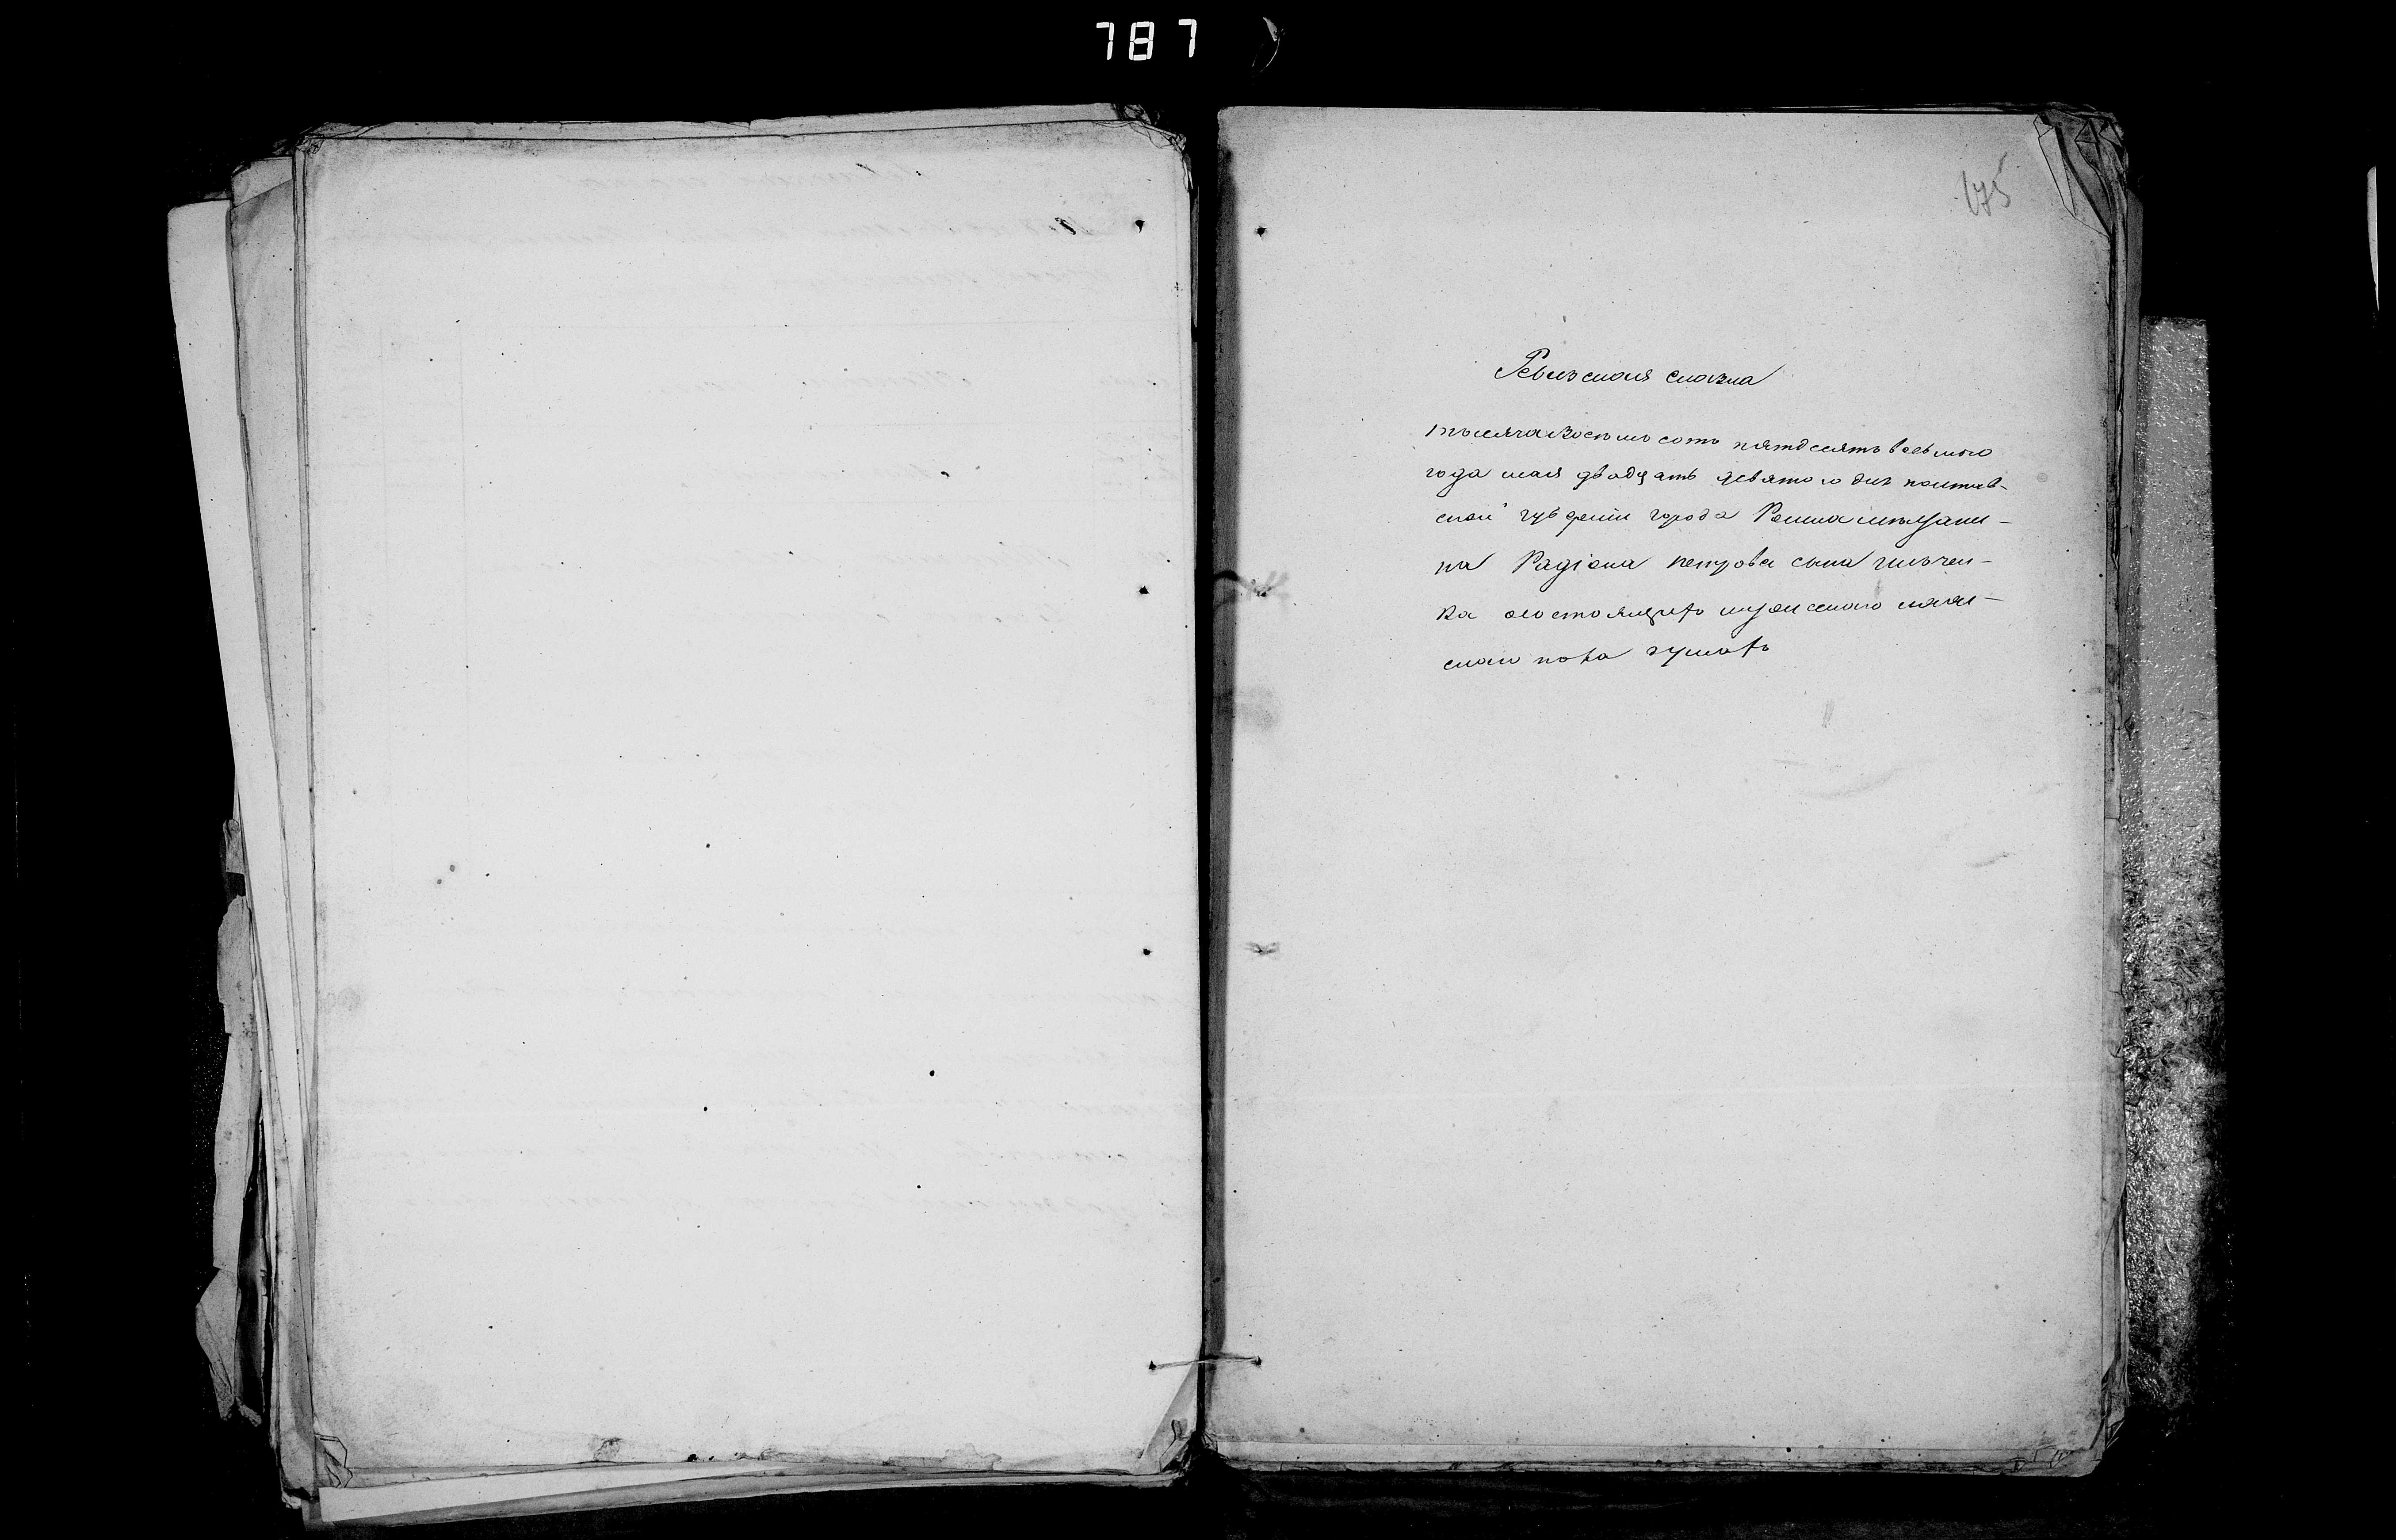 787
175
Ревизская сказка
тысяча восемь сотъ пятдесятъ восьмого
года мая двадцать девятого дня полтав-
ской губерніи города Ромна мѣщани-
на Радіона петрова сына
ка о состоящихъ мужеского
пола душахъ